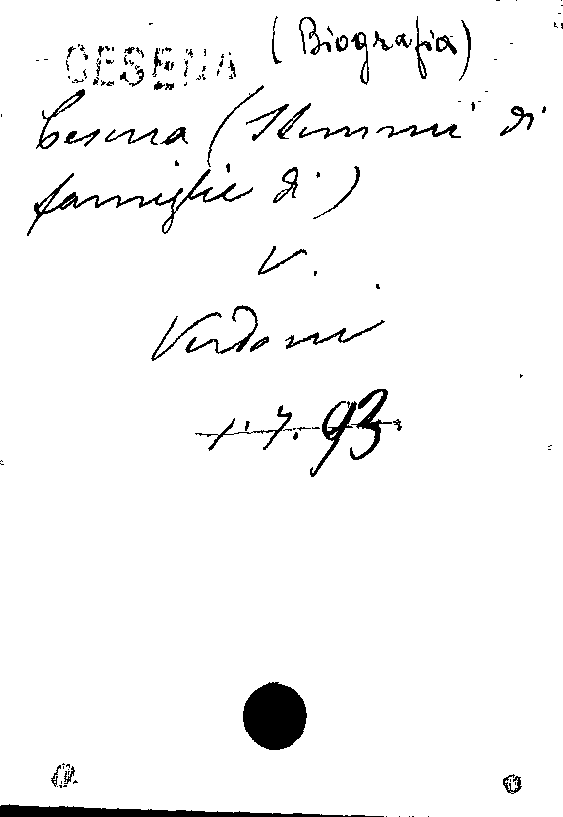 CESENA (Biografia)
Cesena (Stemmi di
famiglie di)
V.
Verdoni
1.7.93.